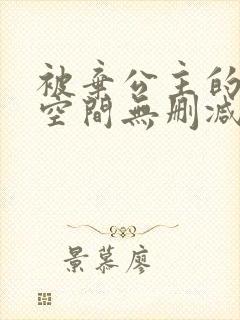 被棄公主的
空間無刪減
景慕廖